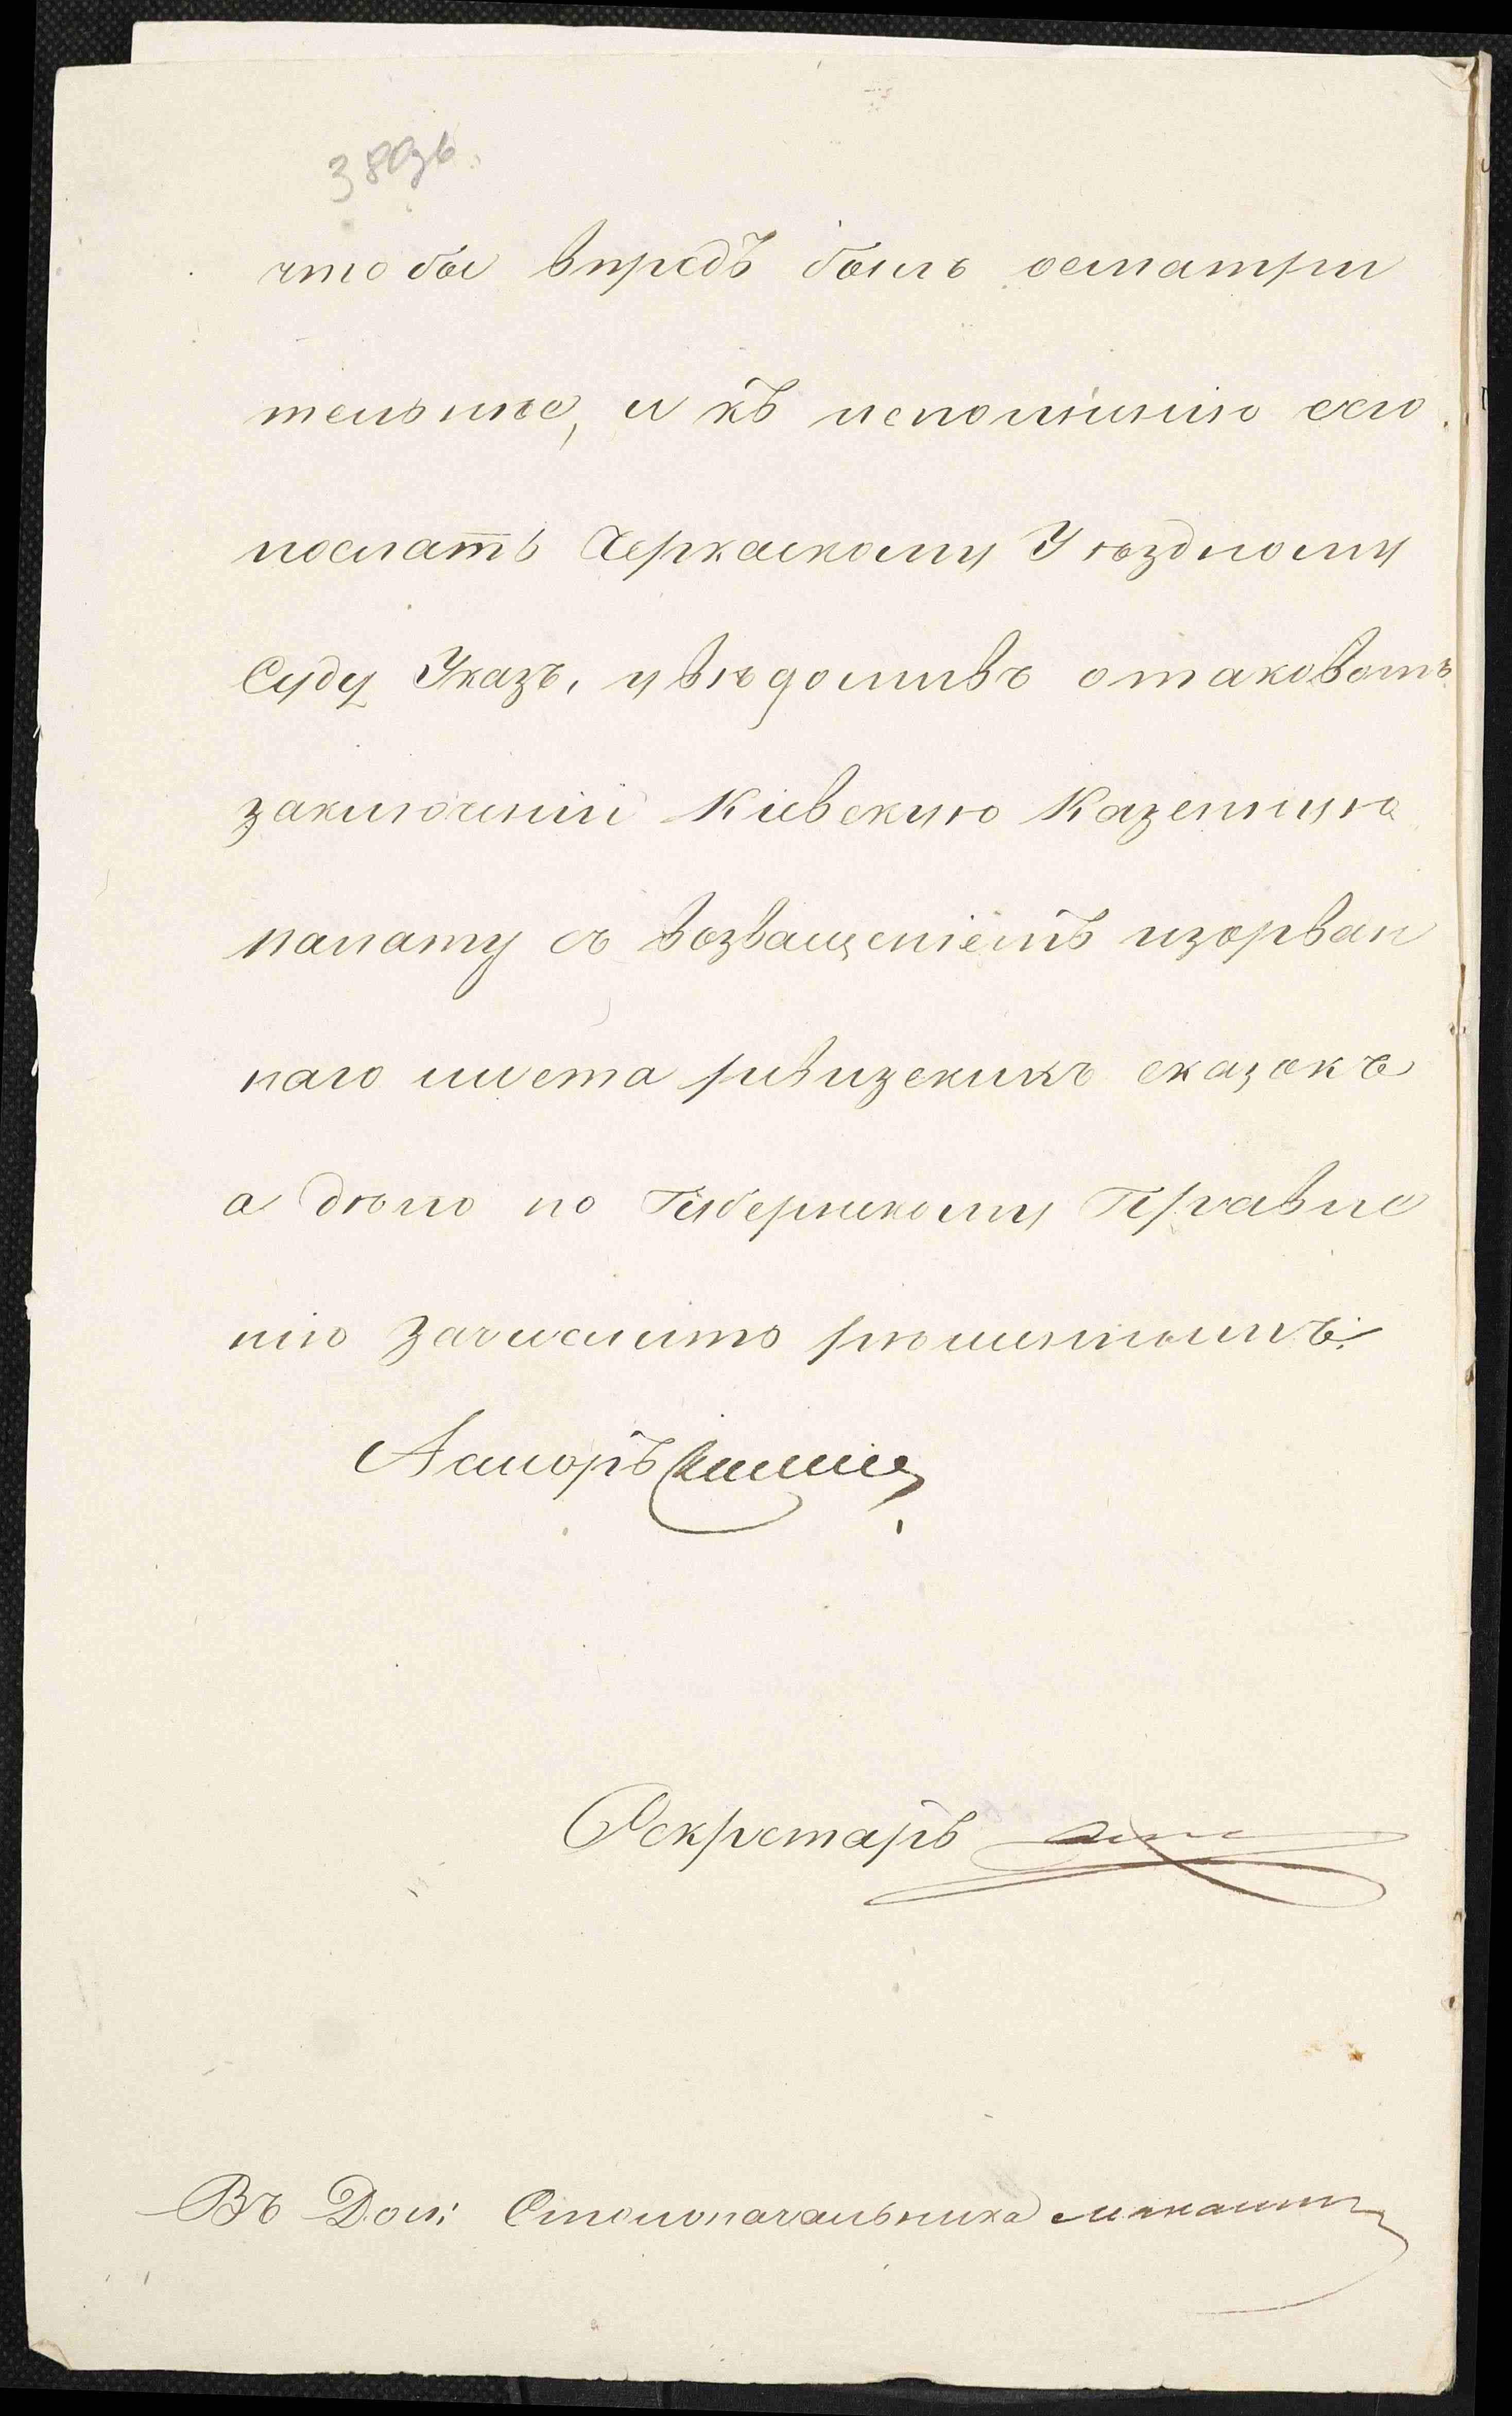 38об.
что бы впредъ былъ осматри
тельнѣе, и къ исполненію сего
послать Черкаскому Уѣздному
Суду Указъ, увѣдомивъ отаковомъ
заключеніи Кіевскую Казенную
палату съ возващеніемъ изорван
наго листа ревизскихъ сказокъ
а дѣло по Губернскому Правле
нію зачислить рѣшеннымъ.
Асессоръ
Секретарь
Въ Дол: Столоначальника